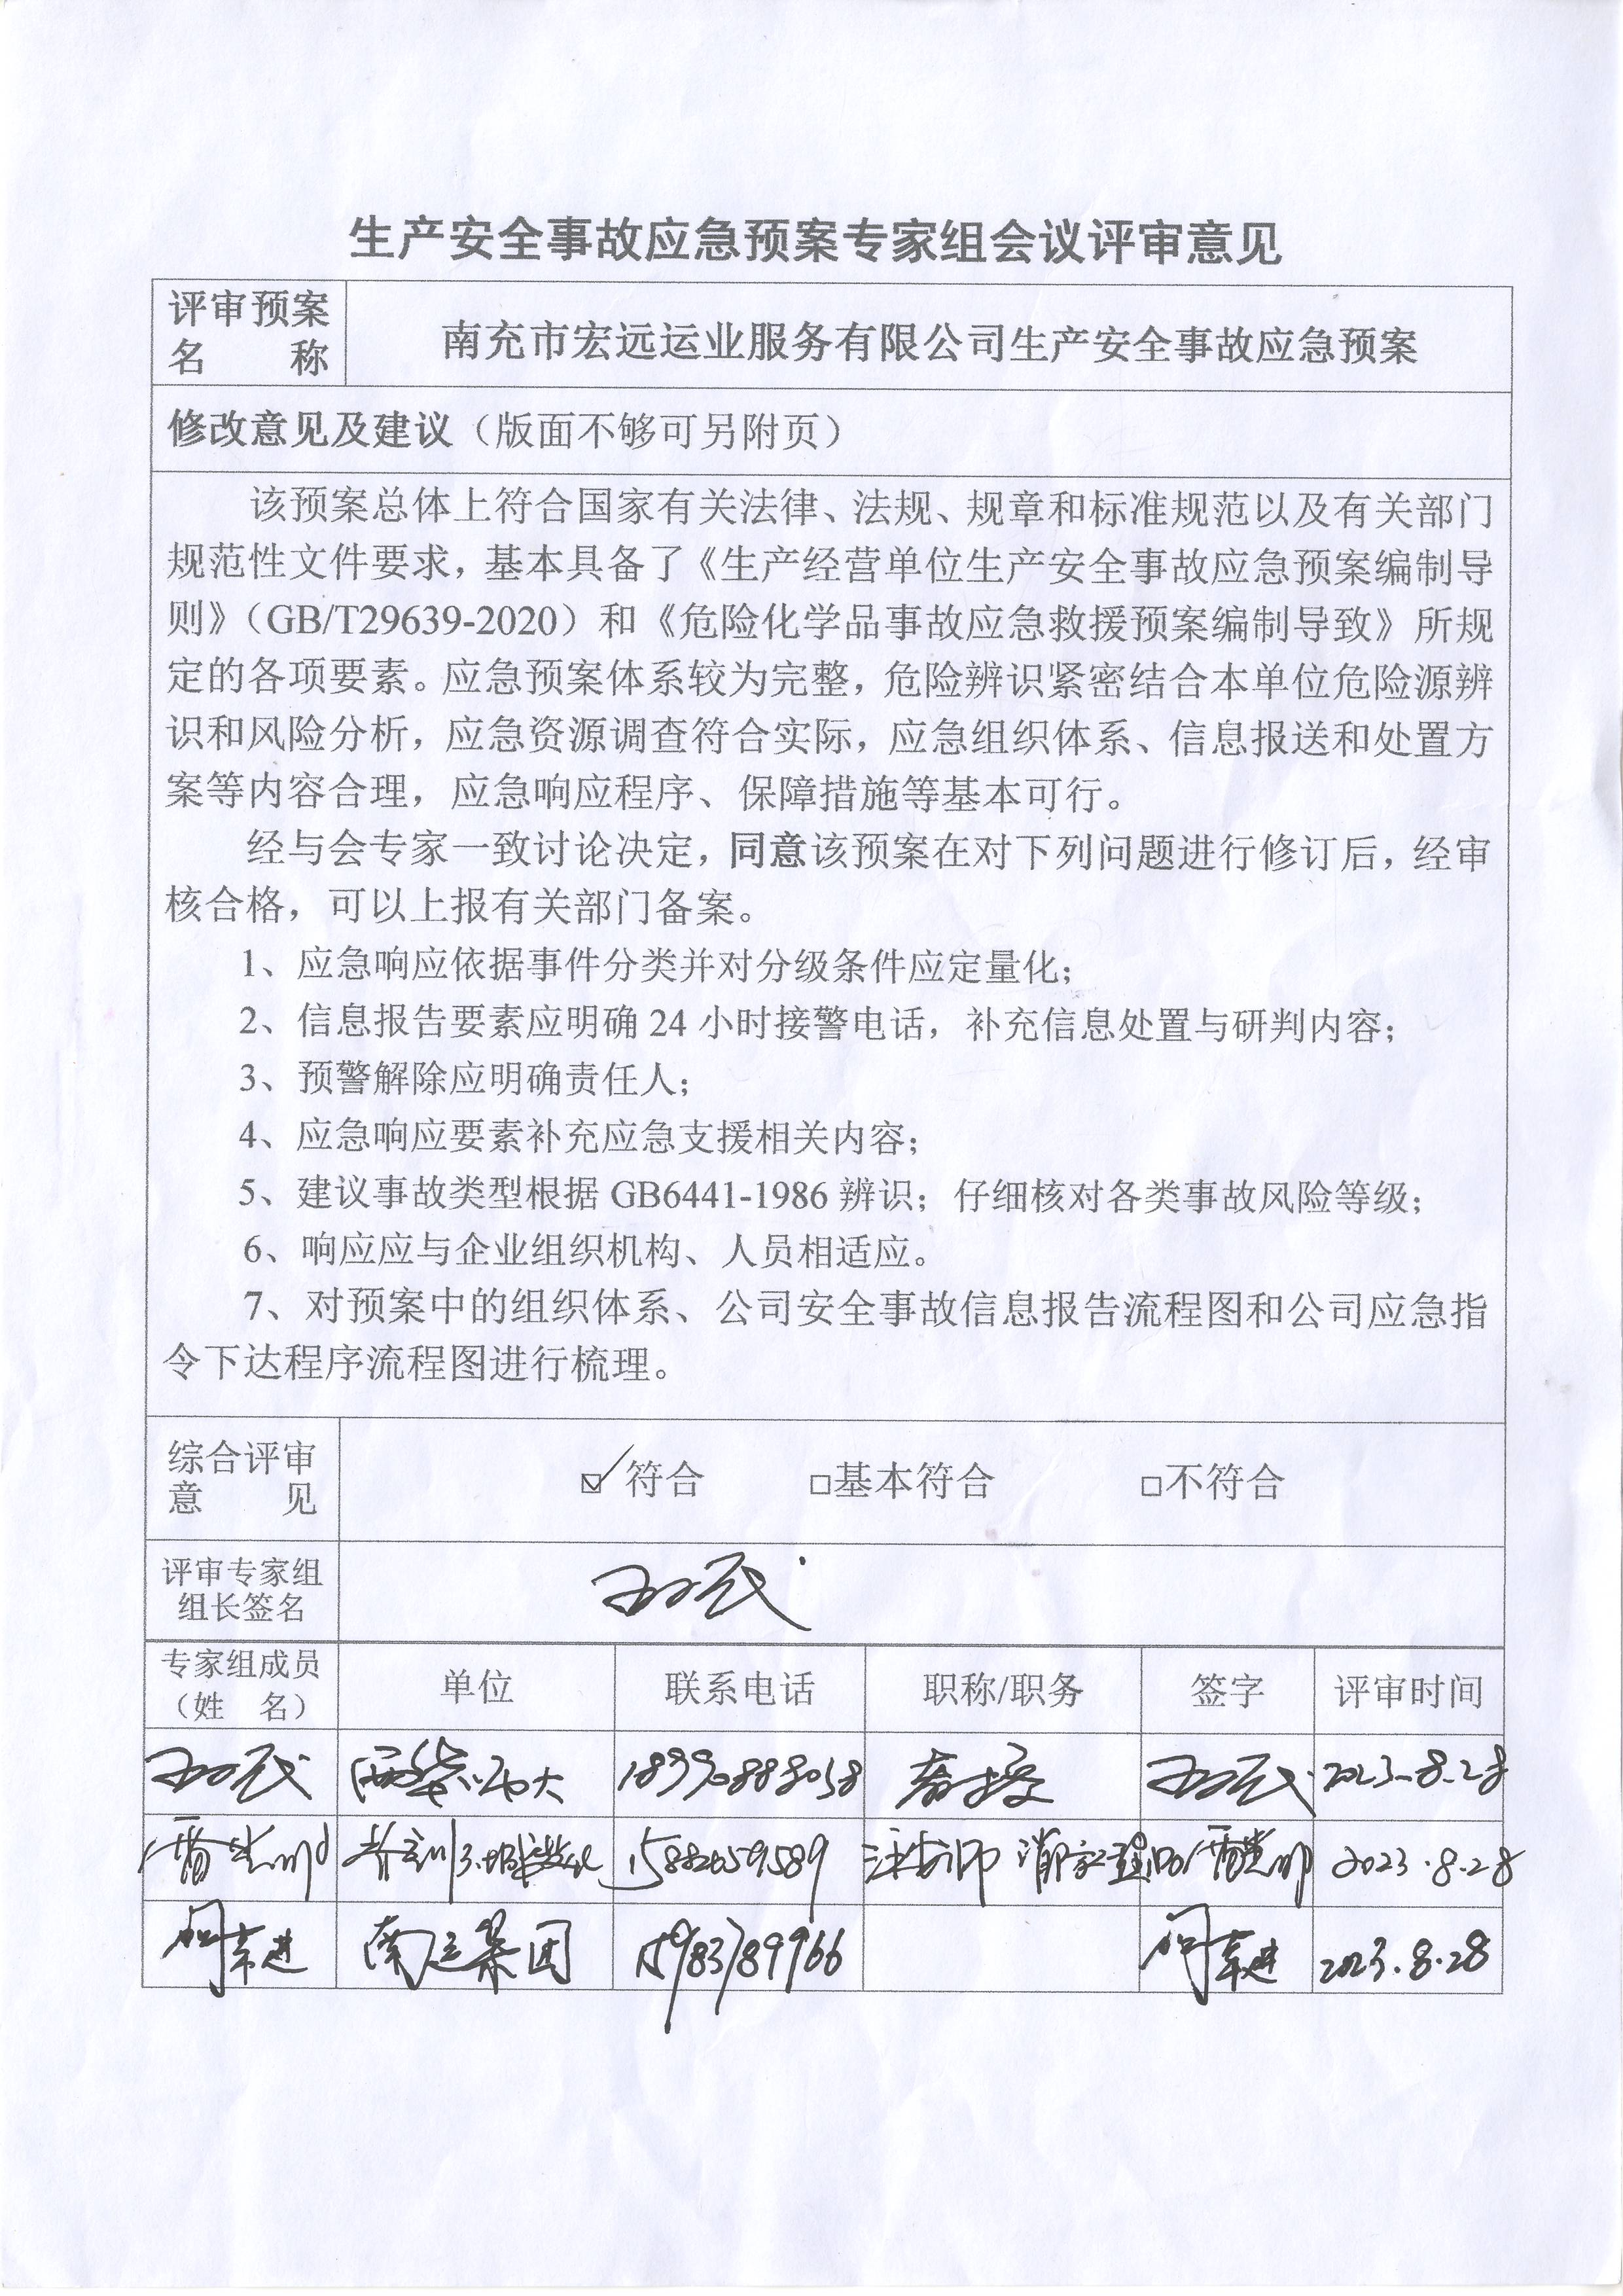 生产安全事故应急预案专家组会议评审意见
评审预案
名 称
南充市宏远运业服务有限公司生产安全事故应急预案
修改意见及建议（版面不够可另附页）
该预案总体上符合国家有关法律、法规、规章和标准规范以及有关部门
规范性文件要求，基本具备了《生产经营单位生产安全事故应急预案编制导
则》（GB/T29639-2020）和《危险化学品事故应急救援预案编制导致》所规
定的各项要素。应急预案体系较为完整，危险辨识紧密结合本单位危险源辨
识和风险分析，应急资源调查符合实际，应急组织体系、信息报送和处置方
案等内容合理，应急响应程序、保障措施等基本可行。
经与会专家一致讨论决定，同意该预案在对下列问题进行修订后，经审
核合格，可以上报有关部门备案。
1、应急响应依据事件分类并对分级条件应定量化；
2、信息报告要素应明确 24 小时接警电话，补充信息处置与研判内容；
3、预警解除应明确责任人；
4、应急响应要素补充应急支援相关内容；
5、建议事故类型根据 GB6441-1986 辨识；仔细核对各类事故风险等级；
6、响应应与企业组织机构、人员相适应。
7、对预案中的组织体系、公司安全事故信息报告流程图和公司应急指
令下达程序流程图进行梳理。
综合评审
意 见
☑ 符合 □基本符合 □不符合
评审专家组
组长签名
专家组成员
（姓 名）
单位 联系电话 职称/职务 签字 评审时间
教授 2023.8.28
2023.8.28
南运集团 2023.8.28